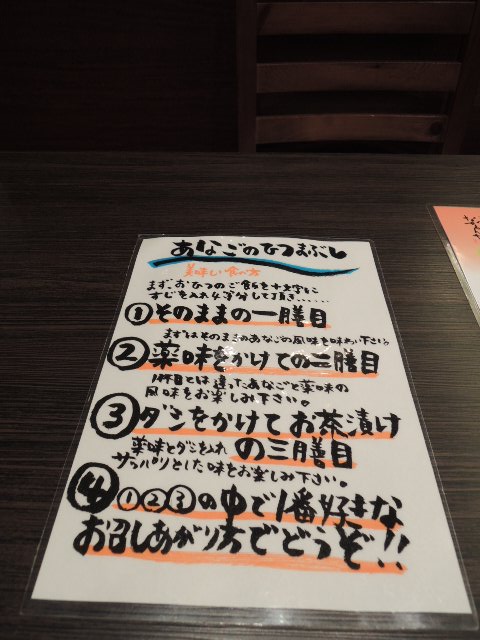 あなごのひつまぶし
美味しい食べ方
まず、おひつのご飯を十文字に
すじを入れ4等分して頂き……
①そのままの一膳目
まずはそのままのあなごの風味を味わい下さい。
②薬味をかけての二膳目
1杯目とは違ったあなごと薬味の
風味をお楽しみ下さい。
③ダシをかけてお茶漬け
の三膳目
薬味とダシを入れ
サッパリとした味をお楽しみ下さい。
④①②③の中で1番好きな
お召しあがり方でどうぞ!!